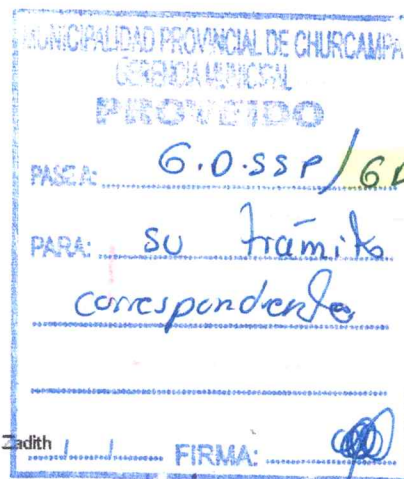 MUNICIPALIDAD PROVINCIAL DE CHURCAMPA
GERENCIA MUNICIPAL
PROVEIDO
PASE A: G.D.SSP/GD
PARA: su trámite
correspondiente
Zadith
FIRMA: